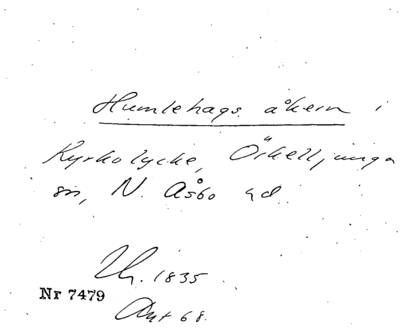 Humlehags åkern i
Kyrkolycke, Örkelljunga
sn, N. Åsbo hd.
Th. 1835
Nr 7479
Ant 68.